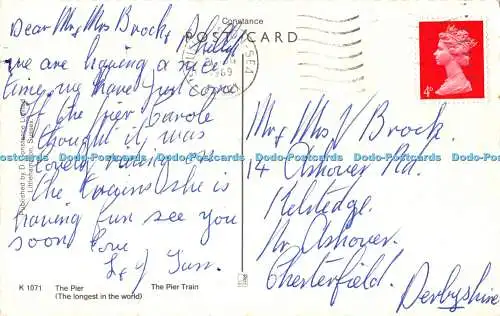 Constance
POST CARD
Dear Mr & Mrs Brock,
we are having a nice
time, we have just come
off the pier Carole
thought it was
lovely riding on
the trains she is
having fun see you
soon love
L & J
SEA
1969
4D
Mr & Mrs V Brock.
14 Ashover Rd.
Kelstedge.
Nr Ashover.
Chesterfield.
Derbyshire
Published by D. Constance Limited,
Littlehampton, Sussex
K 1071 The Pier The Pier Train
(The longest in the world)
Dodo-Postcards Dodo-Postcards Dodo-Postcards Dodo-Postcards Dodo-Postcards Dodo-Postcards